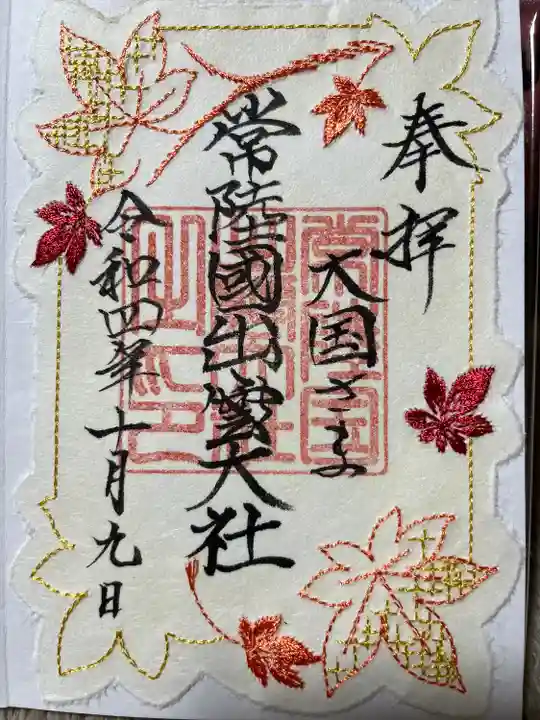 奉拝
大国さま
常陸國出雲大社
令和四年十月九日